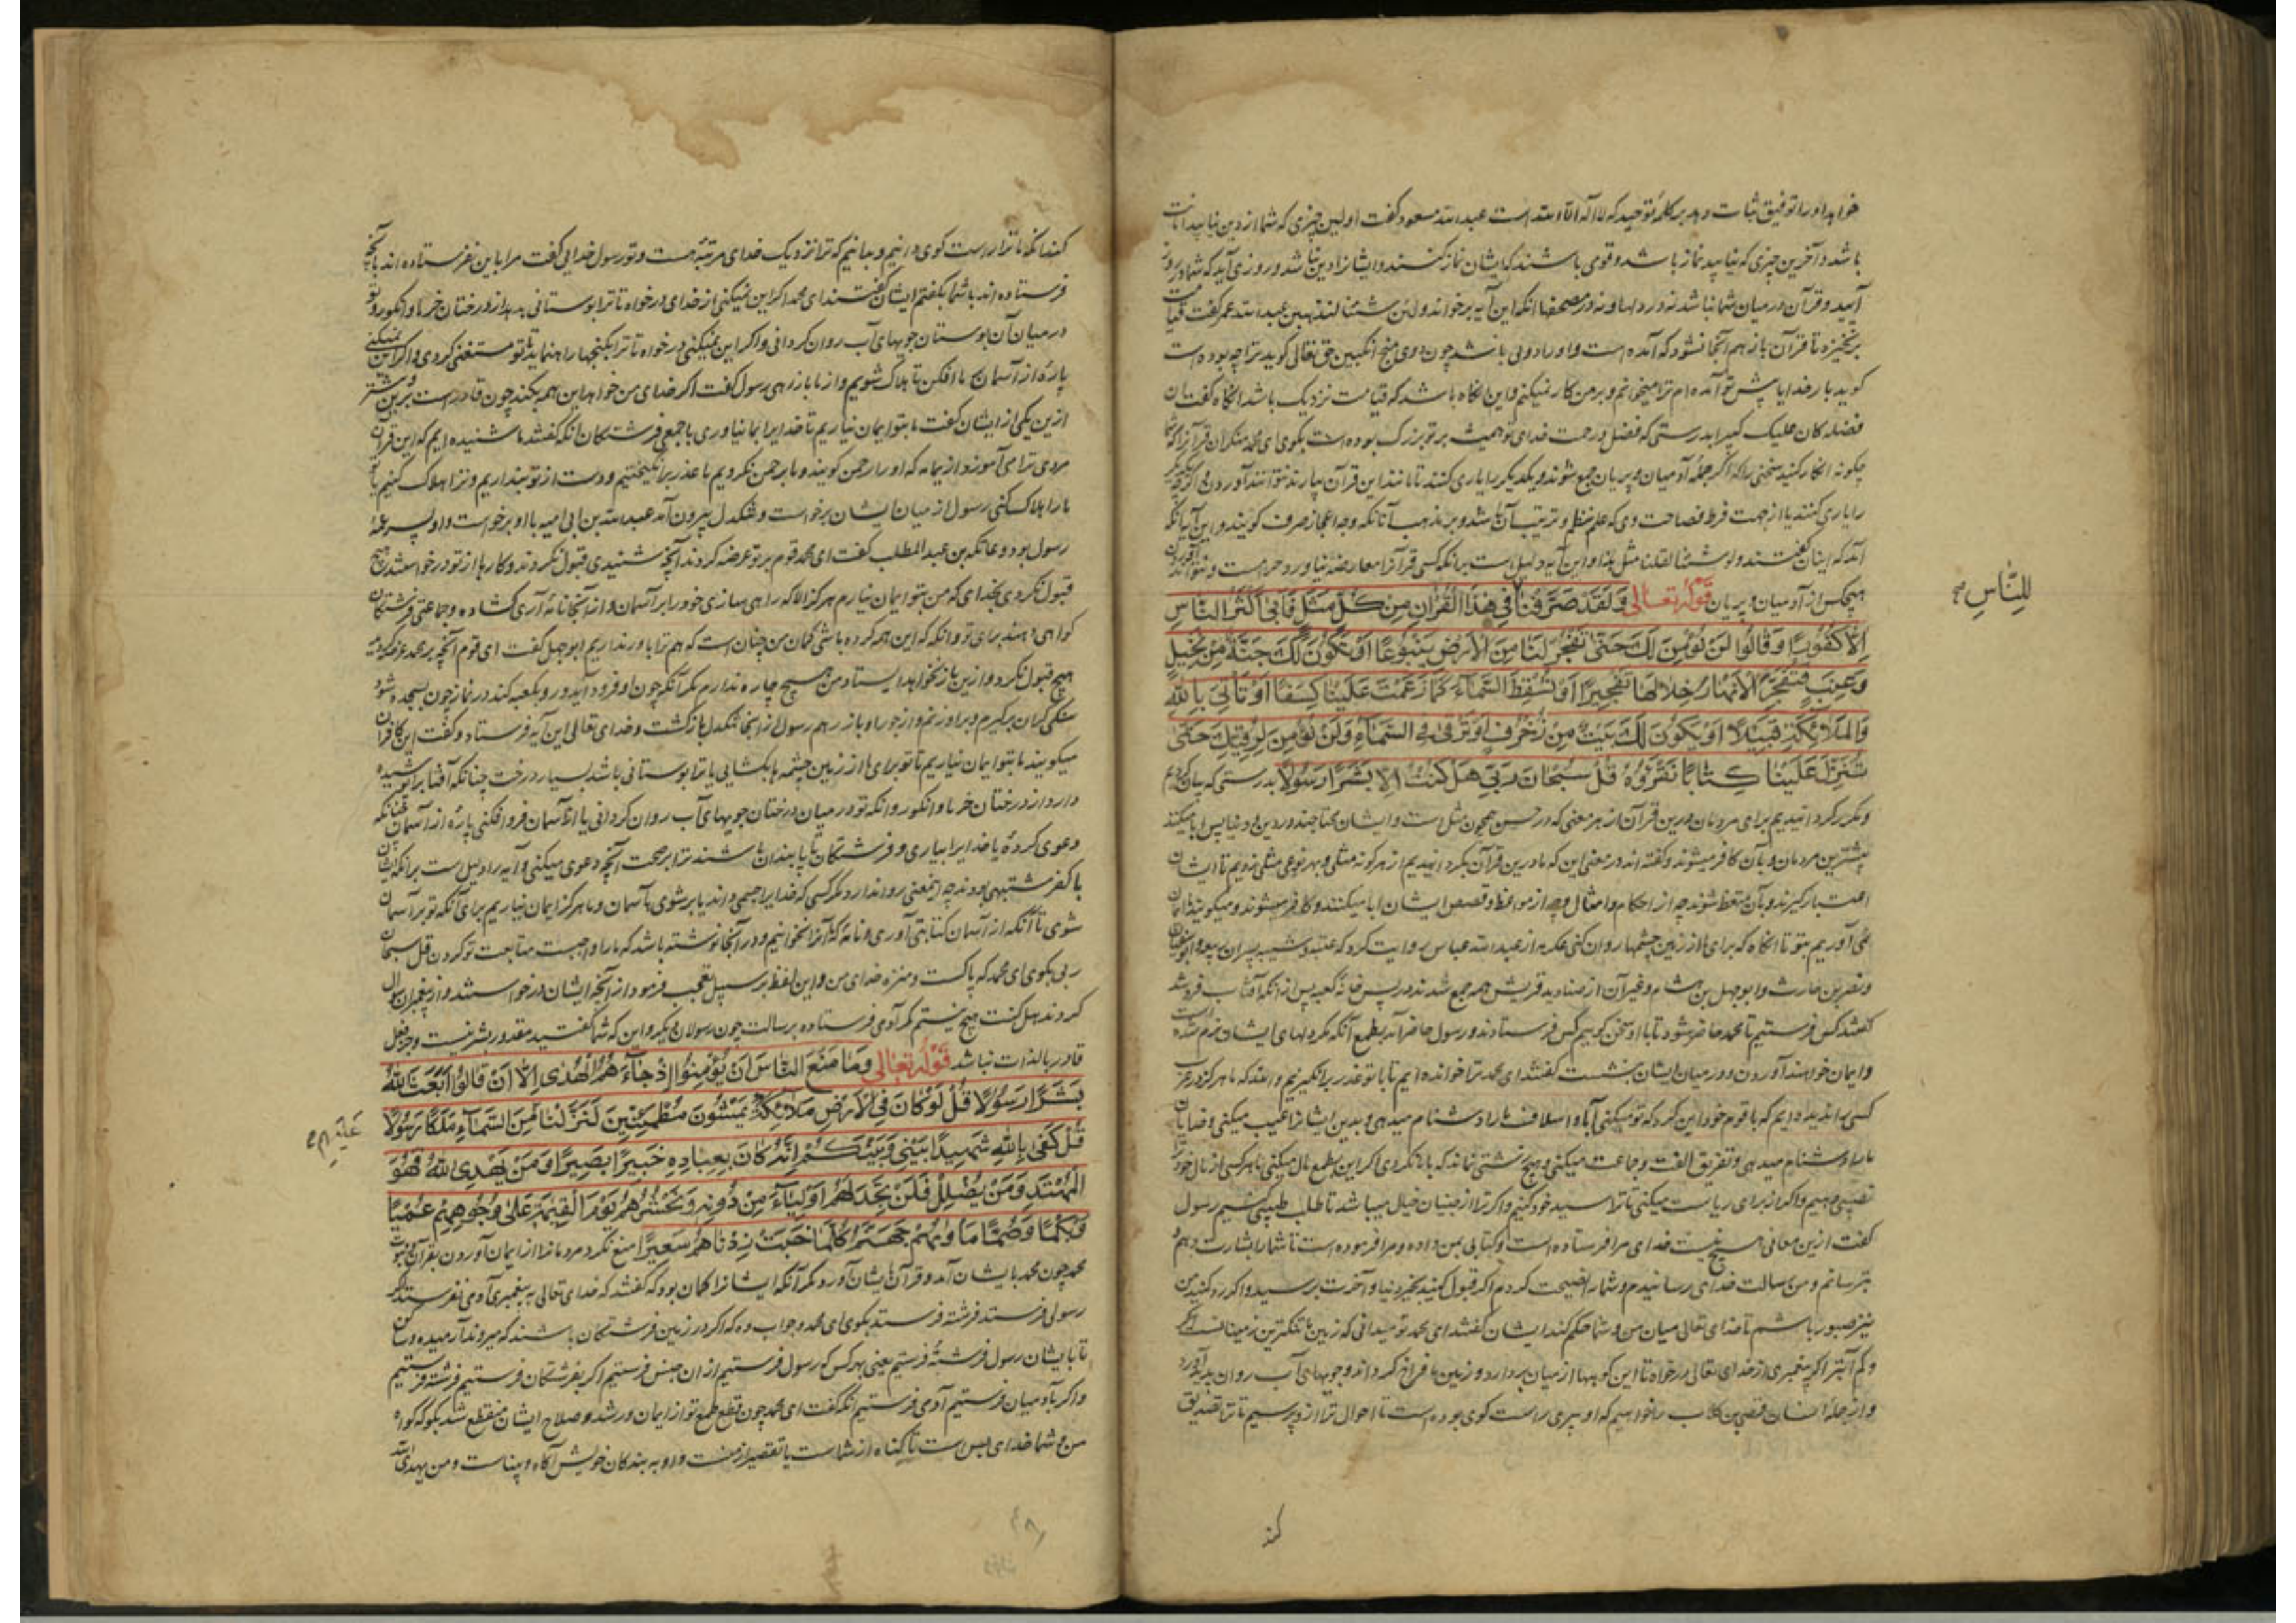 خواهد او را توفیق ثبات دهد بر کلمهٔ توحید که لا اله الا الله است عبدالله مسعود گفت اولین چیزی که شما از دین نیابید امانت
باشد و آخرین چیزی که نیابید نماز باشد و قومی باشند که ایشان نماز کنند و ایشانرا دین نباشد و روزی آید که شما
آیید و قرآن در میان شما نباشد نه در دلها و نه در مصحفها آنکه این آیه بر خواند ولئن شئنا لنذهبن عبدالله عمر گفت قیامت
برنخیزد تا قرآن باز هم آنجا نشود که آمده است و او را دویی باشد چون دوی منج انگبین حق تعالی گوید ترا چه بوده است
گوید بار خدایا پیش تو آمده ام ترا میخوانم و بر من کار نمیکنم و این آنگاه باشد که قیامت نزدیک باشد آنگاه گفت ان
فضله کان علیک کبیرا بدرستی که فضل و رحمت خدای تو همیشه بر تو بزرک بوده است بگوی ای محمد منکران قرآنرا که شما
چگونه انکار کنید سخنی را که اگر جمله آدمیان و پریان جمع شوند و یکدیگر را یاری کنند تا مانند این قرآن بیارند نتوانند آوردن و اگرچه یکدیگر
را یاری کنند یا از جهت فرط فصاحت وی که علم نظم و ترتیب آن باشد و بر مذهب آنانکه وجه اعجاز صرف گویند و این آیه آنگه
آمد که اینان گفتند ولو شئنا لقلنا مثل هذا و این آیه دلیل است بر آنکه کسی قرآنرا معارضه نیاورد و نتوانند آوردن
هیچکس از آدمیان و پریان قوله تعالی وَلَقَدْ صَرَّفْنَا فِي هَذَا الْقُرْآنِ مِنْ كُلِّ مَثَلٍ فَأَبَى أَكْثَرُ النَّاسِ
للِنَّاسِ
إِلَّا كُفُورًا وَقَالُوا لَنْ نُؤْمِنَ لَكَ حَتَّى تَفْجُرَ لَنَا مِنَ الْأَرْضِ يَنْبُوعًا أَوْ تَكُونَ لَكَ جَنَّةٌ مِنْ نَخِيلٍ
وَعِنَبٍ فَتُفَجِّرَ الْأَنْهَارَ خِلَالَهَا تَفْجِيرًا أَوْ تُسْقِطَ السَّمَاءَ كَمَا زَعَمْتَ عَلَيْنَا كِسَفًا أَوْ تَأْتِيَ بِاللَّهِ
وَالْمَلَائِكَةِ قَبِيلًا أَوْ يَكُونَ لَكَ بَيْتٌ مِنْ زُخْرُفٍ أَوْ تَرْقَى فِي السَّمَاءِ وَلَنْ نُؤْمِنَ لِرُقِيِّكَ حَتَّى
تُنَزِّلَ عَلَيْنَا كِتَابًا نَقْرَؤُهُ قُلْ سُبْحَانَ رَبِّي هَلْ كُنْتُ إِلَّا بَشَرًا رَسُولًا بدرستی که بیان کردیم
و مکرر گردانیدیم برای مردمان درین قرآن از هر معنی که در حسن همچون مثل است
بیشترین مردمان و بآن کافر میشوند و گفته اند در معنی این که ما درین قرآن بگردانیدیم از هر گونه مثلی و بهر نوعی مثلی زدیم تا ایشان
اعتبار گیرند و بآن متعظ شوند چه از احکام و امثال و چه از مواعظ و قصص ایشان ابا میکنند و کافر میشوند و میگویند ایمان
نمی آوریم بتو تا آنگاه که برای ما از زمین چشمها روان کنی عکرمه از عبدالله عباس روایت کرد که عتبه و شیبه پسران ربیعه و ابوسفیان
و نضر بن حارث و ابوجهل بن هشام و غیر آن از صنادید قریش همه جمع شدند در پس خانهٔ کعبه پس از آنکه آفتاب فروشد
گفتند کس فرستیم تا محمد حاضر شود تا با او سخن گوییم کس فرستادند و رسول حاضر آمد بطمع آنکه مگر دلهای ایشان نرم شده است
و ایمان خواهند آوردن و در میان ایشان بنشست گفتند ای محمد ترا خوانده ایم تا با تو عذر برانگیزیم والله که ما هرگز در عرب
کسی را ندیده ایم که با قوم خود این کرد که تو میکنی آبا و اسلاف ما را دشنام میدهی و بدین ایشانرا عیب میکنی و خدایان
ما را دشنام میدهی و تفریق الفت و جماعت میکنی و هیچ زشتی نماند که با ما نکردی اگر این بطمع مال میکنی ما هر کسی از مال خود ترا
نصیبی دهیم و اگر از برای ریاست میکنی تا ترا سید خود کنیم و اگر ترا از جنیان خیال میباشد تا طلب طبیبی کنیم رسول
گفت ازین معانی هیچ نیست خدای مرا فرستاده است و کتابی بمن داده و مرا فرموده است تا شما را بشارت دهم و
بترسانم و من رسالت خدای رسانیدم و شما را نصیحت کردم اگر قبول کنید بخیر دنیا و آخرت برسید و اگر رد کنید من
نیز صبور باشم تا خدای تعالی میان من و شما حکم کند ایشان گفتند ای محمد تو میدانی که زمین ما تنگترین زمینهاست
و کم آبتر اگر پیغمبری از خدای تعالی درخواه تا این کوهها از میان بردارد و زمین ما فراخ گرداند و جویهای آب روان پدید آورد
و از جملهٔ انسان قصی بن کلاب را که او پیری راست گوی بوده است تا احوال تو ازو پرسیم تا ترا تصدیق
کند
کند آنگه ما ترا راست گوی دانیم و بدانیم که ترا نزدیک خدای مرتبه هست و تو رسول خدایی گفت مرا باین نفرستاده اند بآنچه
فرستاده اند با شما بگفتم ایشان گفتند ای محمد اگر این نمیکنی از خدای درخواه تا ترا بوستانی بدهد از درختان خرما و انگور و تو
در میان آن بوستان جویهای آب روان گردانی و اگر این نمیکنی درخواه تا ترا بگنجها راه نماید تا تو مستغنی گردی و اگر این نمیکنی
پارهٔ از آسمان بما افکن تا هلاک شویم و از ما باز رهی رسول گفت اگر خدای من خواهد این همه بکند چون قادر است
ازین یکی از ایشان گفت ما بتو ایمان نیاریم تا خدایرا بما نیاوری با جمعی فرشتگان آنگه گفتند ما شنیده ایم که این قرآن
مردی ترا می آموزد از یمامه که او را رحمن گویند و ما برحمن نگرویم ما عذر برانگیختیم و دست از تو بنداریم و ترا هلاک کنیم یا
ما را هلاک کنی رسول از میان ایشان برخواست و تنگدل بیرون آمد عبدالله بن ابی امیه با او برخواست و او پسر عمهٔ
رسول بود و عاتکه بن عبدالمطلب گفت ای محمد قوم بر تو عرضه کردند آنچه شنیدی قبول نکردند و کارها از تو درخواستند هیچ
قبول نکردی بخدای که من بتو ایمان نیارم هرگز الا که راهی سازی خود را بر آسمان و از آنجا نامهٔ آری گشاده و جماعتی فرشتگان
گواهی دهند برای تو و آنکه که این همه کرده باشی گمان من چنان است که هم ترا باور نداریم ابوجهل گفت ای قوم آنچه بر محمد عرضه کردید
هیچ قبول نکرد و ازین باز نخواهد ایستاد من هیچ چاره ندارم مگر آنکه چون او فرود آید و رو بکعبه کند در نماز چون بسجده شود
سنگی گران برگیرم و بر او زنم و از جور او باز رهم رسول از آنجا تنگدل بازگشت و خدای تعالی این آیه فرستاد و گفت این کافران
میگویند ما بتو ایمان نیاریم تا تو برای ما از زمین چشمه ها بگشایی یا ترا بوستانی باشد بسیار درخت چنانکه آفتاب را پوشیده
دارد از درختان خرما و انگور و آنکه تو در میان درختان جویهای آب روان گردانی یا از آسمان فرو افکنی پارهٔ از آسمان چنانکه
دعوی کردهٔ یا خدایرا بیاری و فرشتگان تا پایندان باشند ترا بر صحت آنچه دعوی میکنی و آیه را دلیل است بر آنکه ایشان
با کفر مشتبهی بودند چه این معنی روا ندارد مگر کسی که خدایرا جسمی داند یا بر شوی بآسمان و ما هرگز ایمان نیاریم برای آنکه تو بر آسمان
شوی تا آنگه از آسمان کتابتی آوری و نامهٔ که آنرا بخوانیم و در آنجا نوشته باشد که ما را واجبست متابعت تو کردن قل سبحان
ربی بگوی ای محمد که پاکست و منزه خدای من و این لفظ بر سبیل تعجب فرمود از آنچه ایشان درخواستند و از پیغمبران سوال
کردند هل کنت هیچ نیستم مگر آدمی فرستاده برسالت چون رسولان دیگر و این که شما گفتید مقدور بشر نیست و جز فعل
قادر بالذات نباشد قوله تعالی وَمَا مَنَعَ النَّاسَ أَنْ يُؤْمِنُوا إِذْ جَاءَهُمُ الْهُدَى إِلَّا أَنْ قَالُوا أَبَعَثَ اللَّهُ
بَشَرًا رَسُولًا قُلْ لَوْ كَانَ فِي الْأَرْضِ مَلَائِكَةٌ يَمْشُونَ مُطْمَئِنِّينَ لَنَزَّلْنَا مِنَ السَّمَاءِ مَلَكًا رَسُولًا
عَلَيْهِم
قُلْ كَفَى بِاللَّهِ شَهِيدًا بَيْنِي وَبَيْنَكُمْ إِنَّهُ كَانَ بِعِبَادِهِ خَبِيرًا بَصِيرًا وَمَنْ يَهْدِي اللَّهُ فَهُوَ
الْمُهْتَدِ وَمَنْ يُضْلِلْ فَلَنْ تَجِدَ لَهُمْ أَوْلِيَاءَ مِنْ دُونِهِ وَنَحْشُرُهُمْ يَوْمَ الْقِيَمَةِ عَلَى وُجُوهِهِمْ عُمْيًا
وَبُكْمًا وَصُمًّا مَأْوَيهُمْ جَهَنَّمُ كُلَّمَا خَبَتْ زِدْنَاهُمْ سَعِيرًا منع نکرد مردمانرا از ایمان آوردن بقرآن و نبوت
محمد چون محمد بایشان آمد و قرآن بایشان آورد مگر آنکه ایشانرا گمان بود که گفتند که خدای تعالی به پیغمبری آدمی نفرستد اگر
رسولی فرستد فرشته فرستد بگوی ای محمد و جواب ده که اگر در زمین فرشتگان باشند که میروند آرمیده و ساکن
ما بایشان رسول فرشتهٔ فرستیم یعنی بهر کس که رسول فرستیم از ان جنس فرستیم اگر بفرشتگان فرستیم فرشته فرستیم
و اگر بآدمیان فرستیم آدمی فرستیم آنکه گفت ای محمد چون قطع طمع تو از ایمان و رشد و صلاح ایشان منقطع شد بگو که گواه
من و شما خدای بس است تا گناه از شماست یا تقصیر از منست و او به بندگان خویش آگاه و بیناست و من یهدی الله